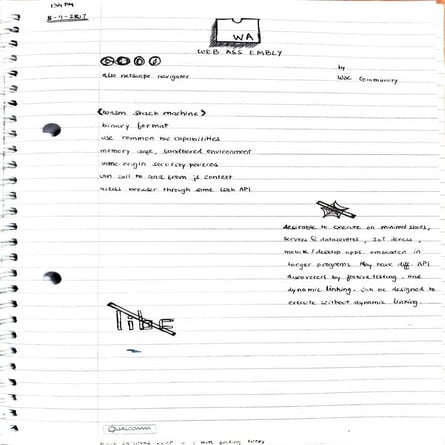 8-7-2017
WA
WEB ASSEMBLY
also netscape navigator
by
W3C Community
<wasm stack machine>
binary format
use common hw capabilities
memory safe, sandboxed environment
same-origin security powered
can call to and from js context
access browser through same Web API
desirable to execute on minimal shells,
servers & datacenters, IoT devices,
mobile/desktop apps, embedded in
larger programs. May have diff. API
discovered by feature testing, and
dynamic linking. Can be designed to
execute without dynamic linking.
libc
QUALCOMM